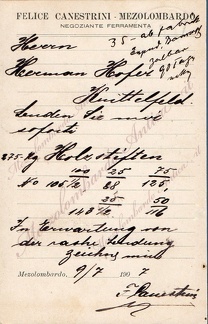 FELICE CANESTRINI - MEZOLOMBARDO
NEGOZIANTE FERRAMENTA
35 - ab fabrik
Herrn
Herman Hofer
Knittelfeld.
Senden Sie mir
sofort
275 kg Holzstiften
100 25 75
No 105/2 88 125
25 50
143/2 116
In Erwartung von
der rashe Sendung
zeichne mich
Mezolombardo, 9/7 1907
F. Canestrini